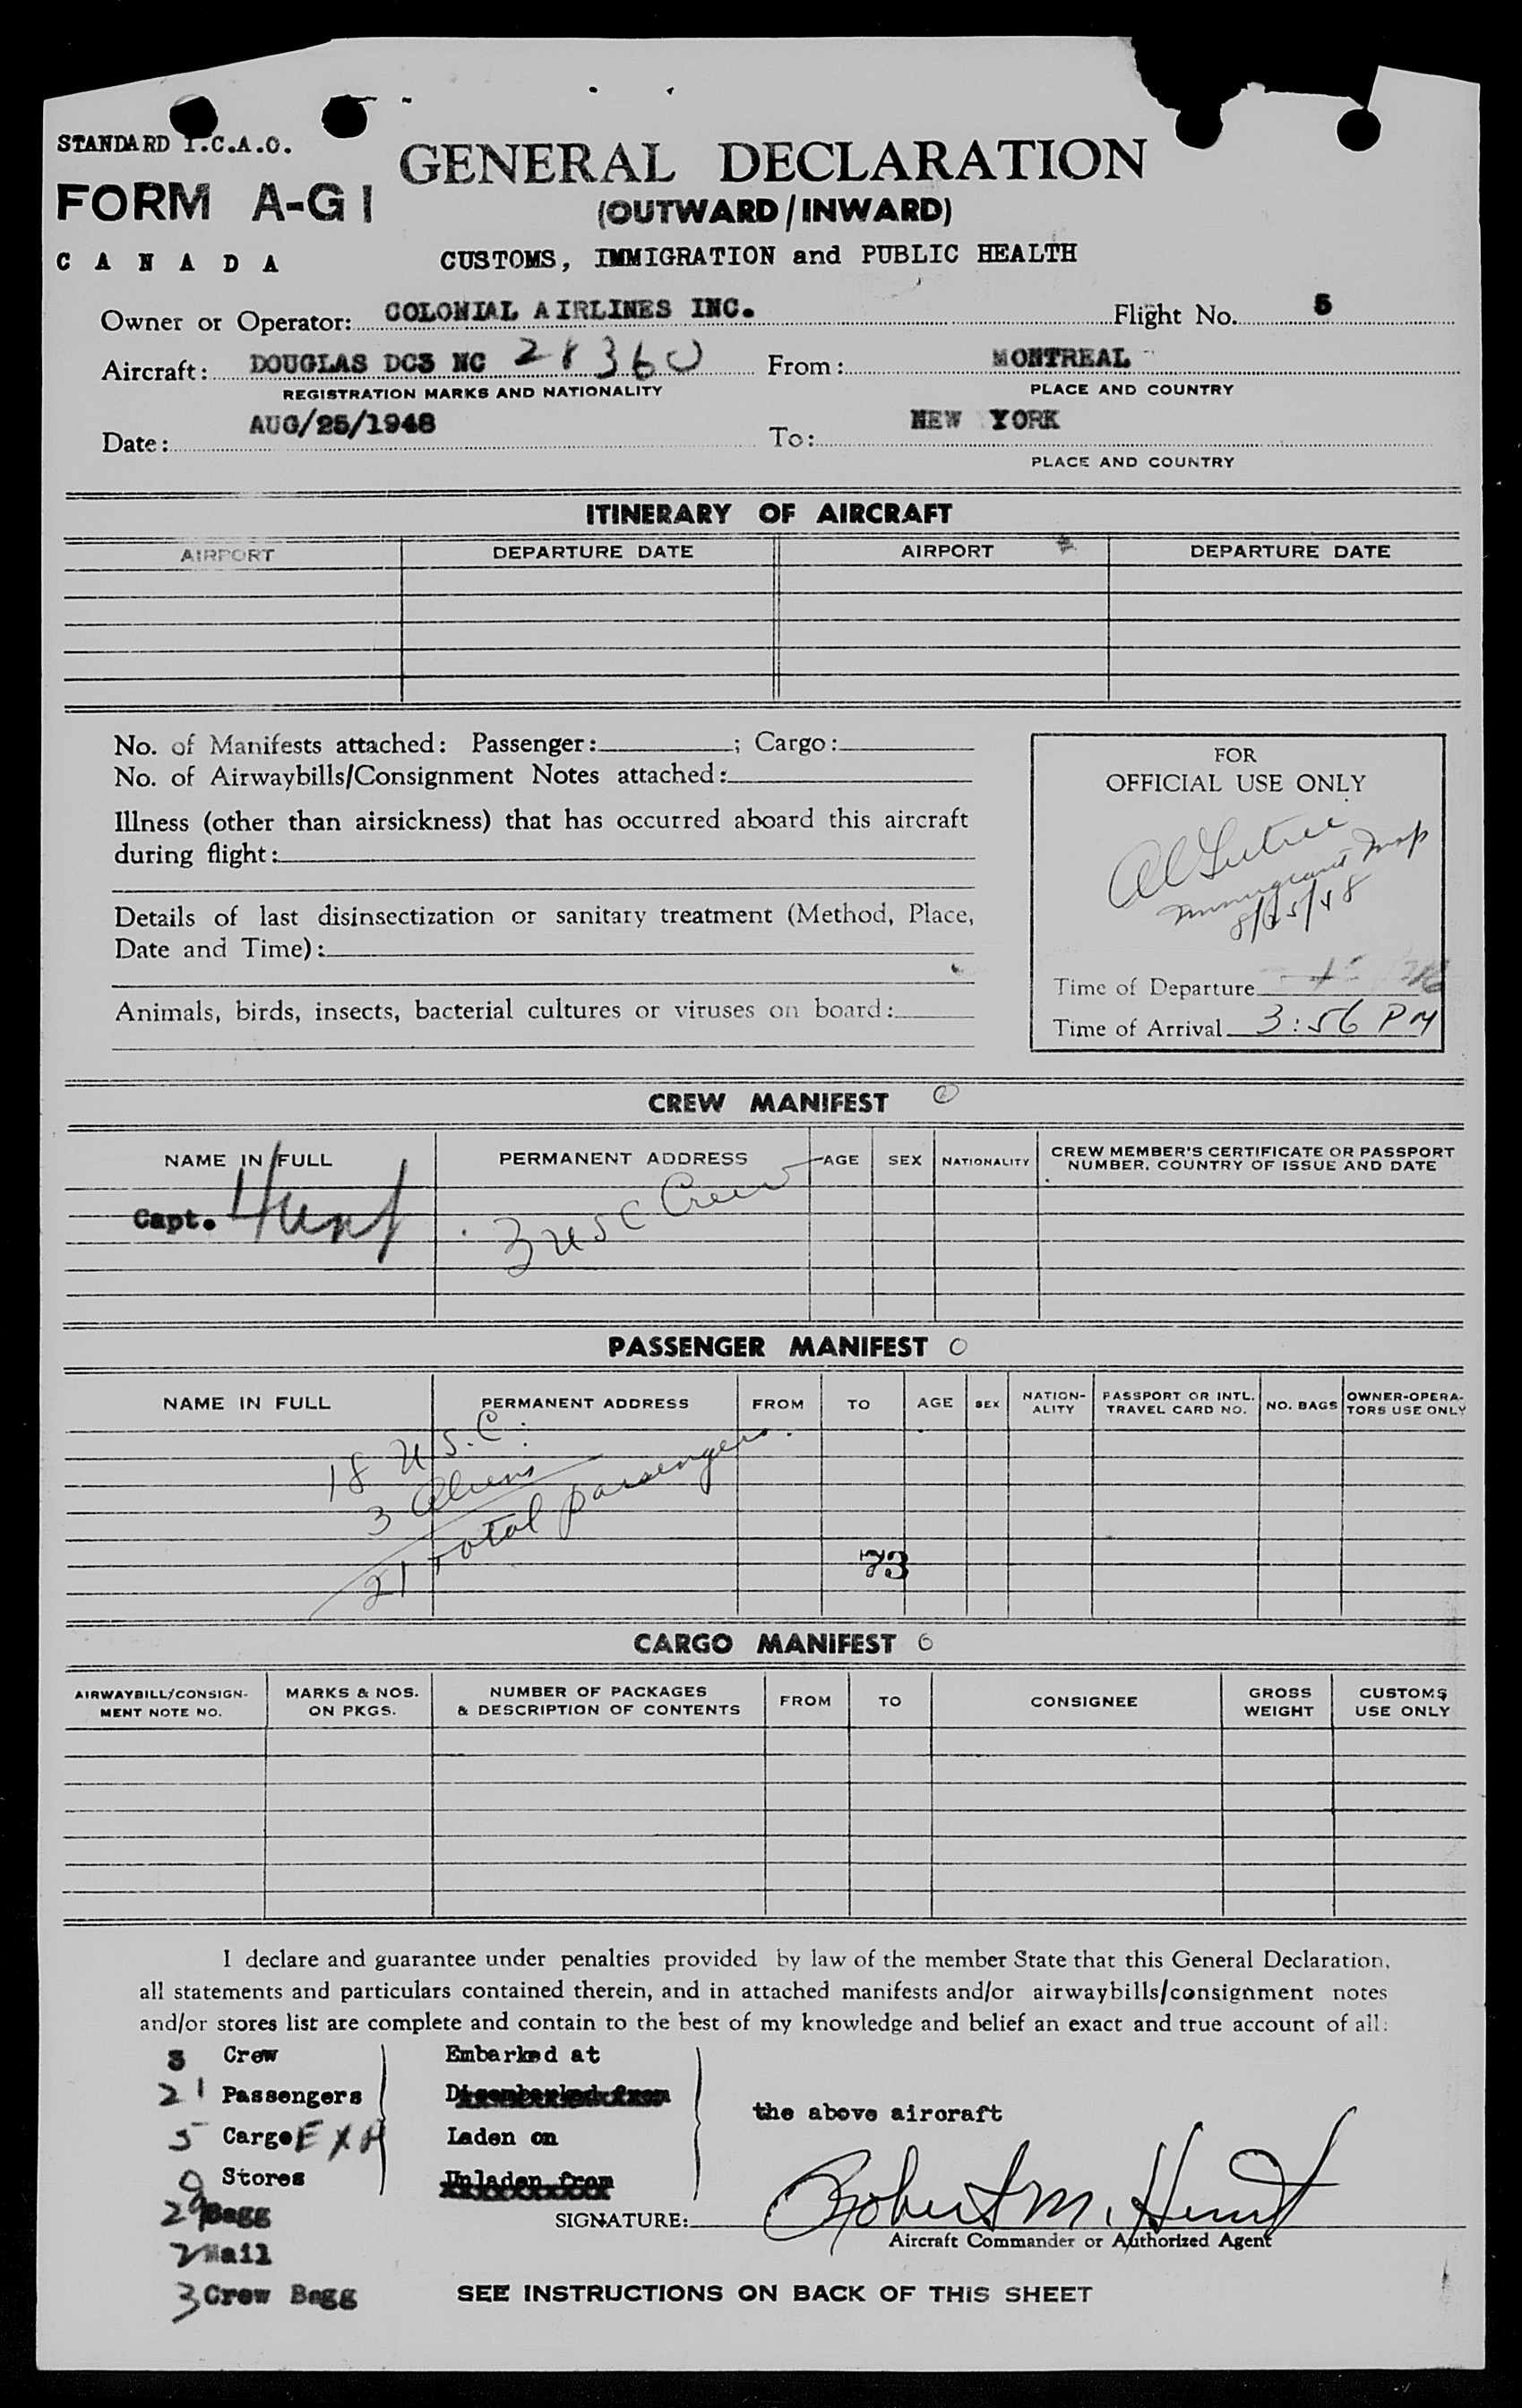 STANDARD I.C.A.O.
FORM A-G1
CANADA
GENERAL DECLARATION
(OUTWARD/INWARD)
CUSTOMS, IMMIGRATION and PUBLIC HEALTH
Owner or Operator: COLONIAL AIRLINES INC. Flight No. 5
Aircraft: DOUGLAS DC3 NC 28360 From: MONTREAL
REGISTRATION MARKS AND NATIONALITY PLACE AND COUNTRY
Date: AUG/25/1948 To: NEW YORK
PLACE AND COUNTRY
ITINERARY OF AIRCRAFT
AIRPORT DEPARTURE DATE AIRPORT DEPARTURE DATE
No. of Manifests attached: Passenger: ; Cargo:
No. of Airwaybills/Consignment Notes attached:
Illness (other than airsickness) that has occurred aboard this aircraft
during flight:
Details of last disinsectization or sanitary treatment (Method, Place,
Date and Time):
Animals, birds, insects, bacterial cultures or viruses on board:
FOR
OFFICIAL USE ONLY
Immigrant Insp
8/25/48
Time of Departure
Time of Arrival 3:56 PM
CREW MANIFEST
NAME IN FULL PERMANENT ADDRESS AGE SEX NATIONALITY CREW MEMBER'S CERTIFICATE OR PASSPORT
NUMBER, COUNTRY OF ISSUE AND DATE
Capt. Hunt 3 USC Crew
PASSENGER MANIFEST 0
NAME IN FULL PERMANENT ADDRESS FROM TO AGE SEX NATION-
ALITY PASSPORT OR INTL.
TRAVEL CARD NO. NO. BAGS OWNER-OPERA-
TORS USE ONLY
18 U.S.C.
3 Aliens
21 Total passengers.
73
CARGO MANIFEST
AIRWAYBILL/CONSIGN-
MENT NOTE NO. MARKS & NOS.
ON PKGS. NUMBER OF PACKAGES
& DESCRIPTION OF CONTENTS FROM TO CONSIGNEE GROSS
WEIGHT CUSTOMS
USE ONLY
I declare and guarantee under penalties provided by law of the member State that this General Declaration,
all statements and particulars contained therein, and in attached manifests and/or airwaybills/consignment notes
and/or stores list are complete and contain to the best of my knowledge and belief an exact and true account of all:
3 Crew Embarked at
21 Passengers Disembarked from
the above aircraft
5 Cargo EXP Laden on
0 Stores Unladen from
29 Bagg
SIGNATURE: Robert M. Hunt
Aircraft Commander or Authorized Agent
2 Mail
3 Crew Bagg
SEE INSTRUCTIONS ON BACK OF THIS SHEET